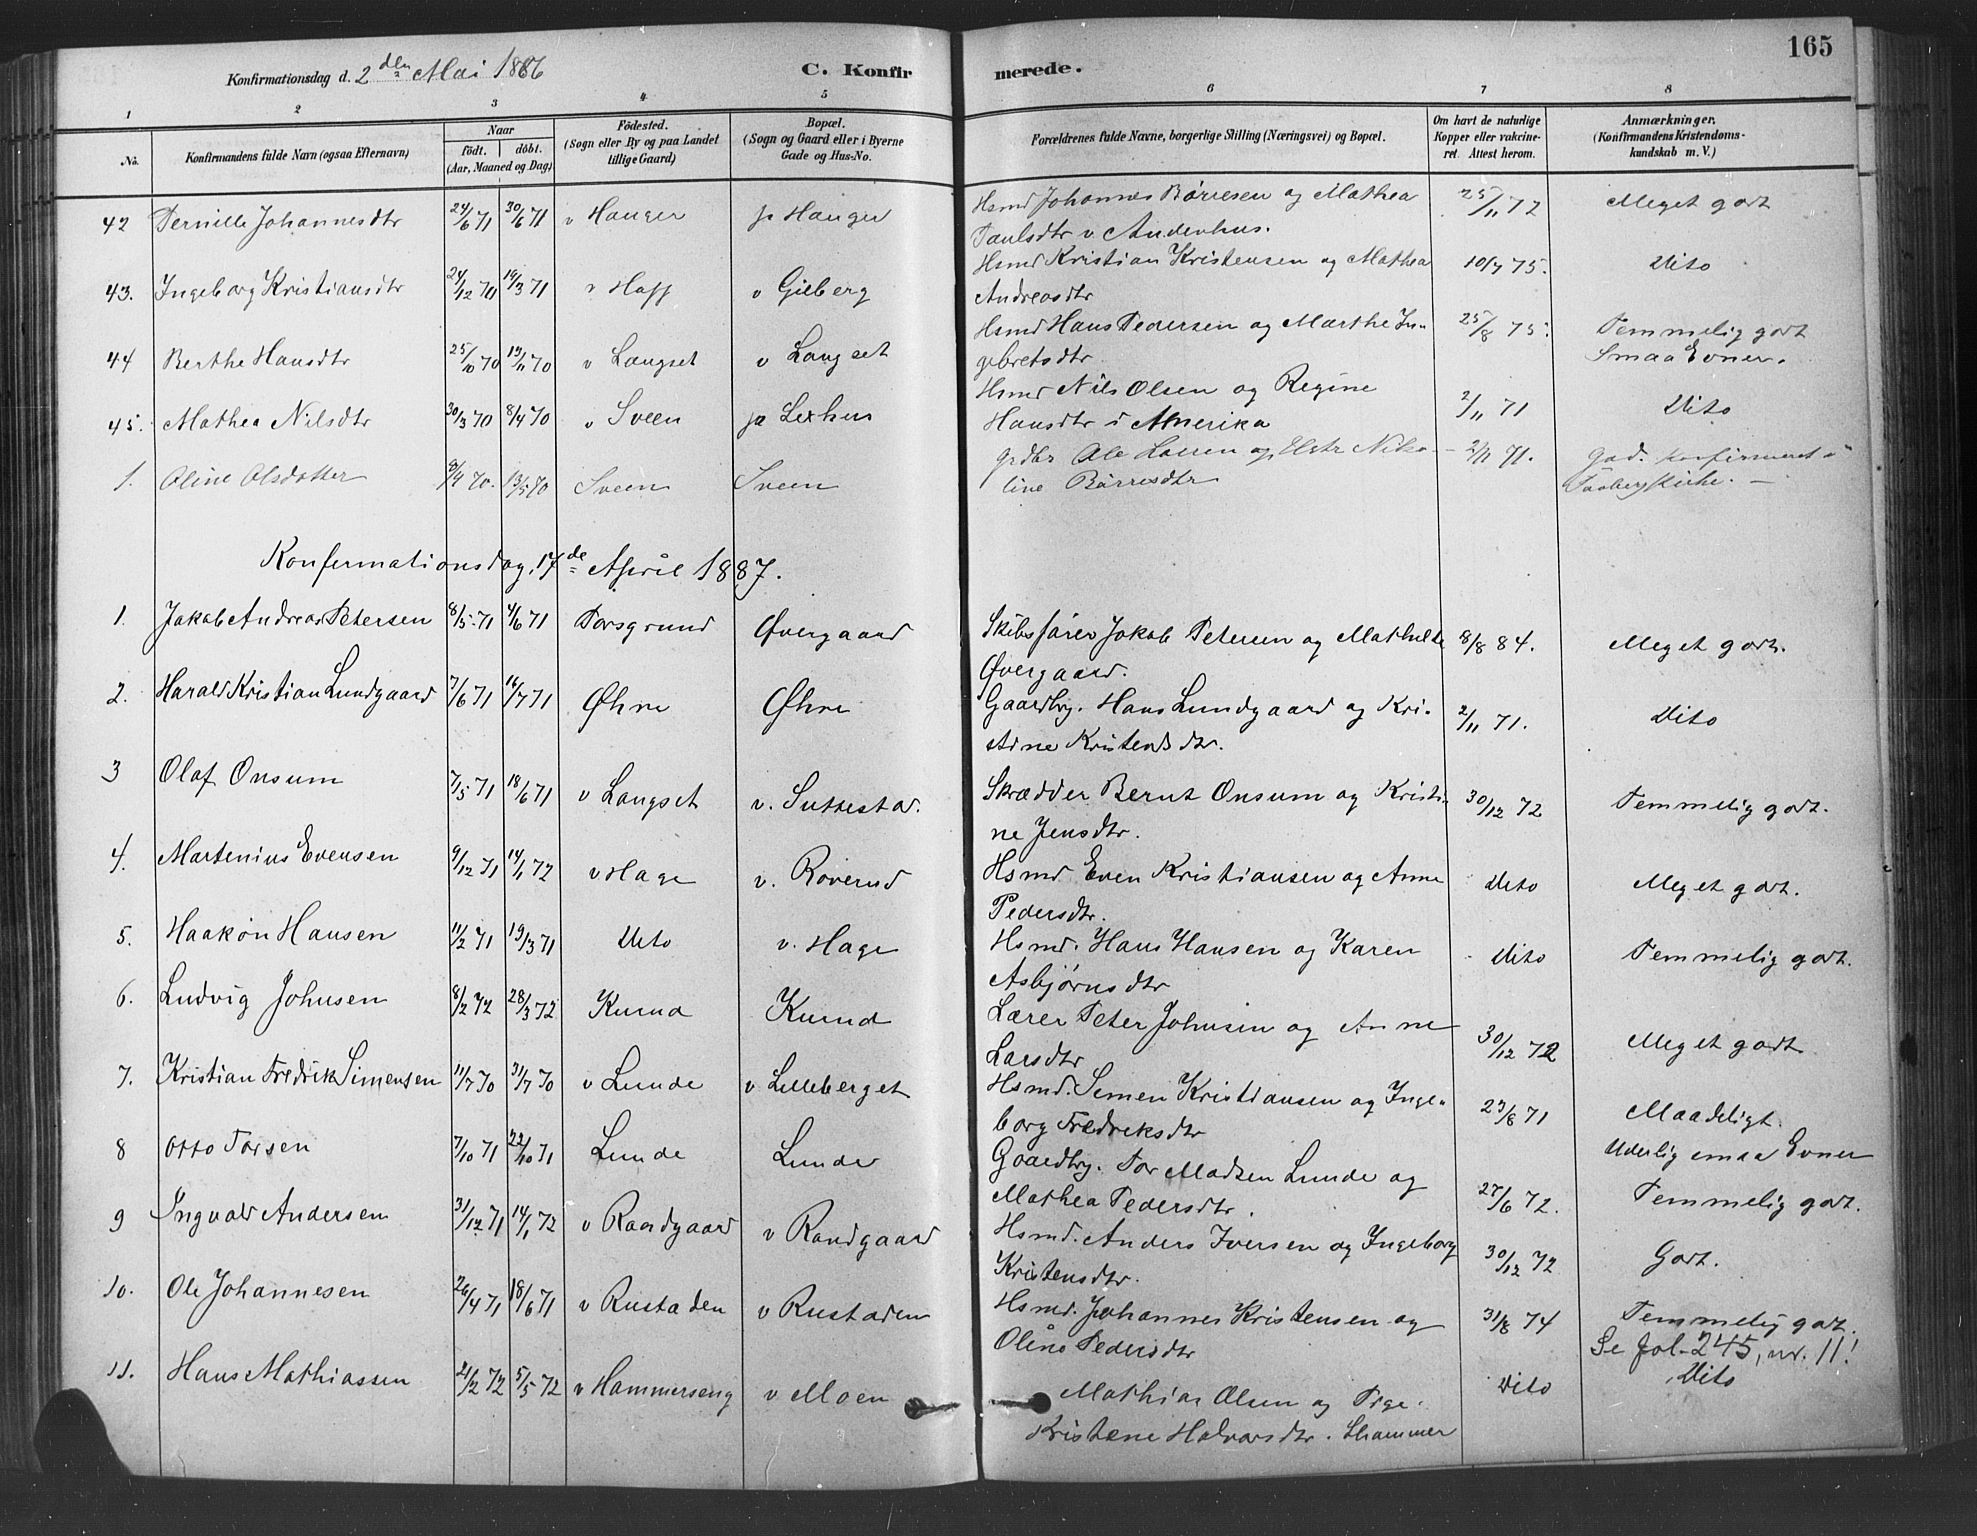 165
Konfirmationsdag d. 2den Mai 1886 C. Konfirmerede.
1 2 3 4 5 6 7 8
No. Konfirmandens fulde Navn (ogsaa Efternavn) Naar födt. döbt. (Aar, Maaned og Dag) Födested. (Sogn eller By og paa Landet tillige Gaard) Bopæl. (Sogn og Gaard eller i Byerne Gade og Hus-No. Forældrenes fulde Navne, borgerlige Stilling (Næringsvei) og Bopæl. Om havt de naturlige Kopper eller vakcineret. Attest herom. Anmærkninger. (Konfirmandens Kristendomskundskab m. V.)
42 Pernille Johannesdtr 24/6 71 30/6 71 v Hanger pa Hanger Hsmd Johannes Börresen og Mathea Paulsdtr v. 25/11 72 Meget godt
43. Ingeborg Kristiansdtr 24/12 70 19/3 71 v Hoff v Gilberg Hsmd Kristian Kristensen og Mathea Andreasdtr 10/7 75. Dito
44 Berthe Hansdtr 25/10 70 19/11 70 v Langset v Langset Hsmd Hans Pedersen og Marthe Ingebretsdtr 25/8 75. Temmelig godt Smaa Evner.
45. Mathea Nilsdtr 30/3 70 8/4 70 v Sveen pa Hsmd Nils Olsen og Regine Hansdtr i Amerika 2/11 71 Dito
1. Oline Olsdatter 8/4 70. 13/5 70 Sveen Sveen Grdbr Ole Larsen og Nikoline Börresdtr 2/11 71. God. konfirmeret i Faaberg Kirke.
Konfermationsdag, 17de April 1887.
1. Jakob Andreas Petersen 8/5 71 4/6 71 Porsgrund Øvergaard Skibsfører Jakob Petersen og Mathilde Øvergaard. 8/8 84. Meget godt.
2. Harald Kristian Lundgaard 7/6 71 16/7 71 Øhre Øhre Gaardbrg. Hans Lundgaard og Kristine Kristensdtr. 2/11 71. Dito
3 Olaf Onsum 7/5 71 18/6 71 v Langset v. Suttestad. Skrædder Bernt Onsum og Kristine Jensdtr. 30/12 72 Temmelig godt.
4. Martenius Evensen 9/12 71 14/1 72 v Hage v. Röverud Hsmd Even Kristiansen og Anne Pedersdtr. Dito Meget godt.
5. Haakon Hansen 11/2 71 19/3 71 Dito v. Hage Hsmd. Hans Hansen og Karen Asbjørnsdtr Dito Temmelig godt.
6. Ludvig Johnsen 8/2 72 28/3 72 Kurud Kurud Lærer Peter Johnsen og Anne Larsdtr 30/12 72 Meget godt
7. Kristian Fredrik Simensen 11/7 70 31/7 70 v Lunde v Lilleberget Hsmd. Simen Kristiansen og Ingeborg Fredriksdtr 23/8 71 Maadeligt. Uderlig smaa Evner
8 Otto Torsen 7/10 71 22/10 71 Lunde Lunde Gaardbrg. Tor Madsen Lunde og Mathea Pedersdtr. 27/6 72. Temmelig godt.
9 Ingvald Andersen 31/12 71 14/1 72 v Randgaard v Randgaard Hsmd. Anders Iversen og Ingeborg Kristensdtr. 30/12 72 Godt.
10. Ole Johannesen 26/4 71 18/6 71 v Rustaden v Rustaden Hsmd. Johannes Kristensen og Oline Pedersdtr 31/8 74 Temmelig godt.
Se fol. 245, nr. 11!
11. Hans Mathiassen 21/2 72 5/5 72 v Hammerseng v Moen Mathias Olsen og Pige. Kristene Halvorsdtr. Dito Dito